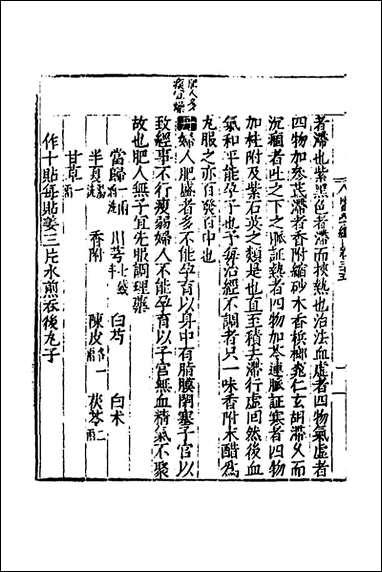 肥人多
痰
者滯也紫黑色者滯而挾熱也治法血虛者四物氣虛者
四物加參芪滯者香附縮砂木香檳榔桃仁玄胡滯久而
沉痼者吐之下之脈証熱者四物加芩連脈証寒者四物
加桂附及紫石英之類是也直至積去滯行虛回然後血
氣和平能孕子也予每治經不調者只一味香附末醋為
丸服之亦百發百中也
婦人肥盛者多不能孕育以身中有脂膜閉塞子宮以
致經事不行瘦弱婦人不能孕育以子宮無血精氣不聚
故也肥人無子宜先服調理藥
當歸一兩酒洗 川芎七錢半 白芍 白术
半夏湯洗 香附 陳皮各一兩 茯苓二兩
甘草一兩
作十貼每貼姜三片水煎吞後丸子